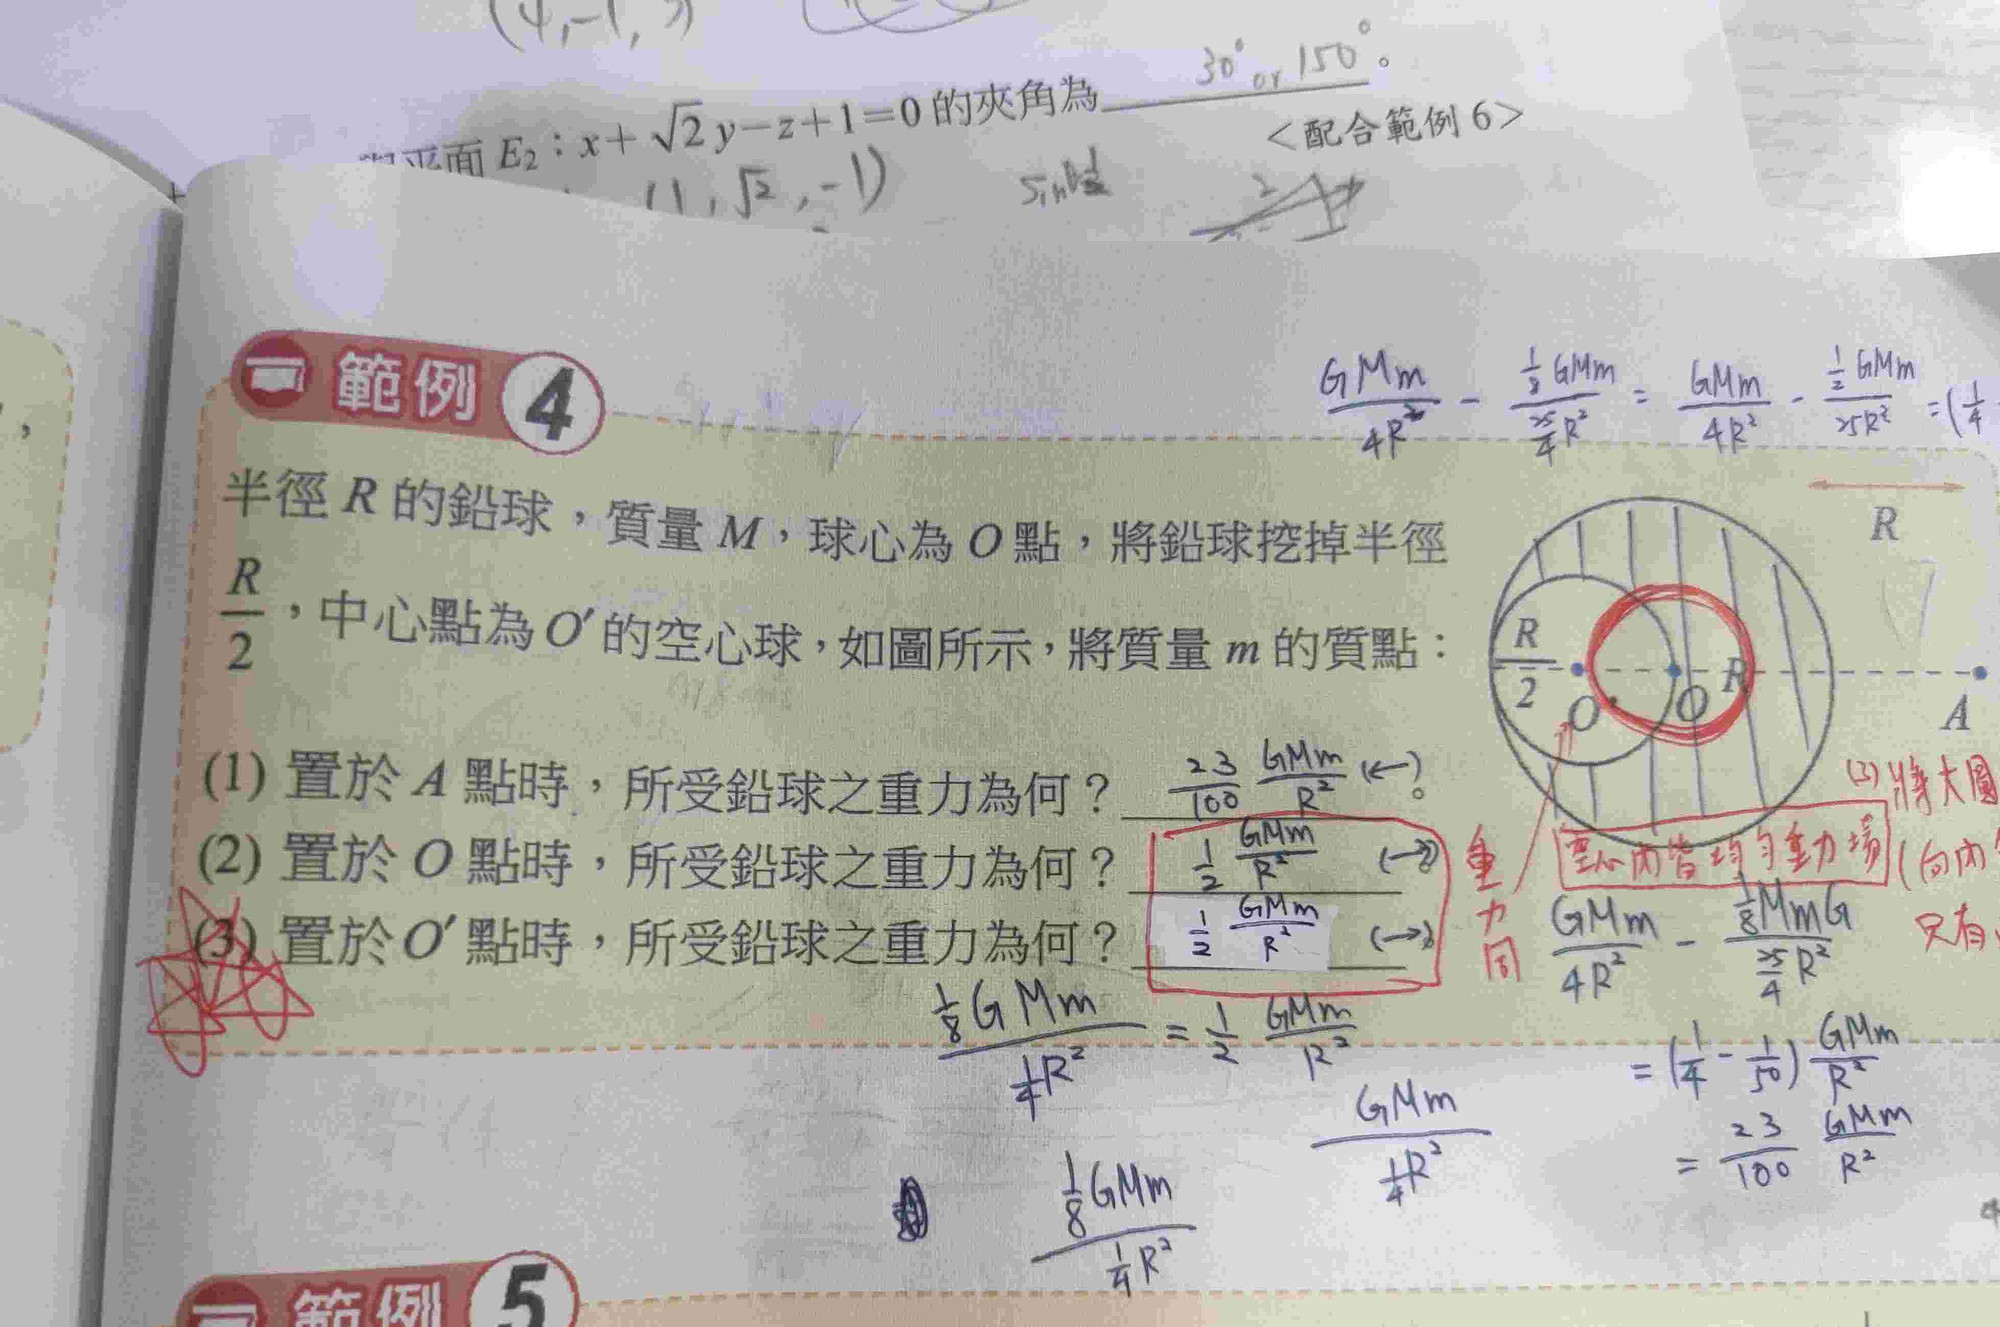 (4,-1,
30° or 150°。
平面 E₂：x＋√2 y－z＋1＝0 的夾角為
＜配合範例 6＞
(1, √2, -1)
2
範例 4
GMm/4R² - 1/8 GMm / 25/4 R² = GMm/4R² - 1/2 GMm/25R² = (1/4
半徑 R 的鉛球，質量 M，球心為 O 點，將鉛球挖掉半徑
R/2，中心點為 O′ 的空心球，如圖所示，將質量 m 的質點：
R
R/2
O′
O
R
A
(1) 置於 A 點時，所受鉛球之重力為何？ 23/100 GMm/R² (←)。
(2) 置於 O 點時，所受鉛球之重力為何？ 1/2 GMm/R² (→)
(3) 置於 O′ 點時，所受鉛球之重力為何？ 1/2 GMm/R² (→)
重力同
空心內皆均勻重力場
(3) 將大圓
(向內
只有
GMm/4R² - 1/8 MmG / 25/4 R²
= (1/4 - 1/50) GMm/R²
= 23/100 GMm/R²
1/8 GMm / 1/4 R² = 1/2 GMm/R²
GMm / 1/4 R²
1/8 GMm / 1/4 R²
範例 5